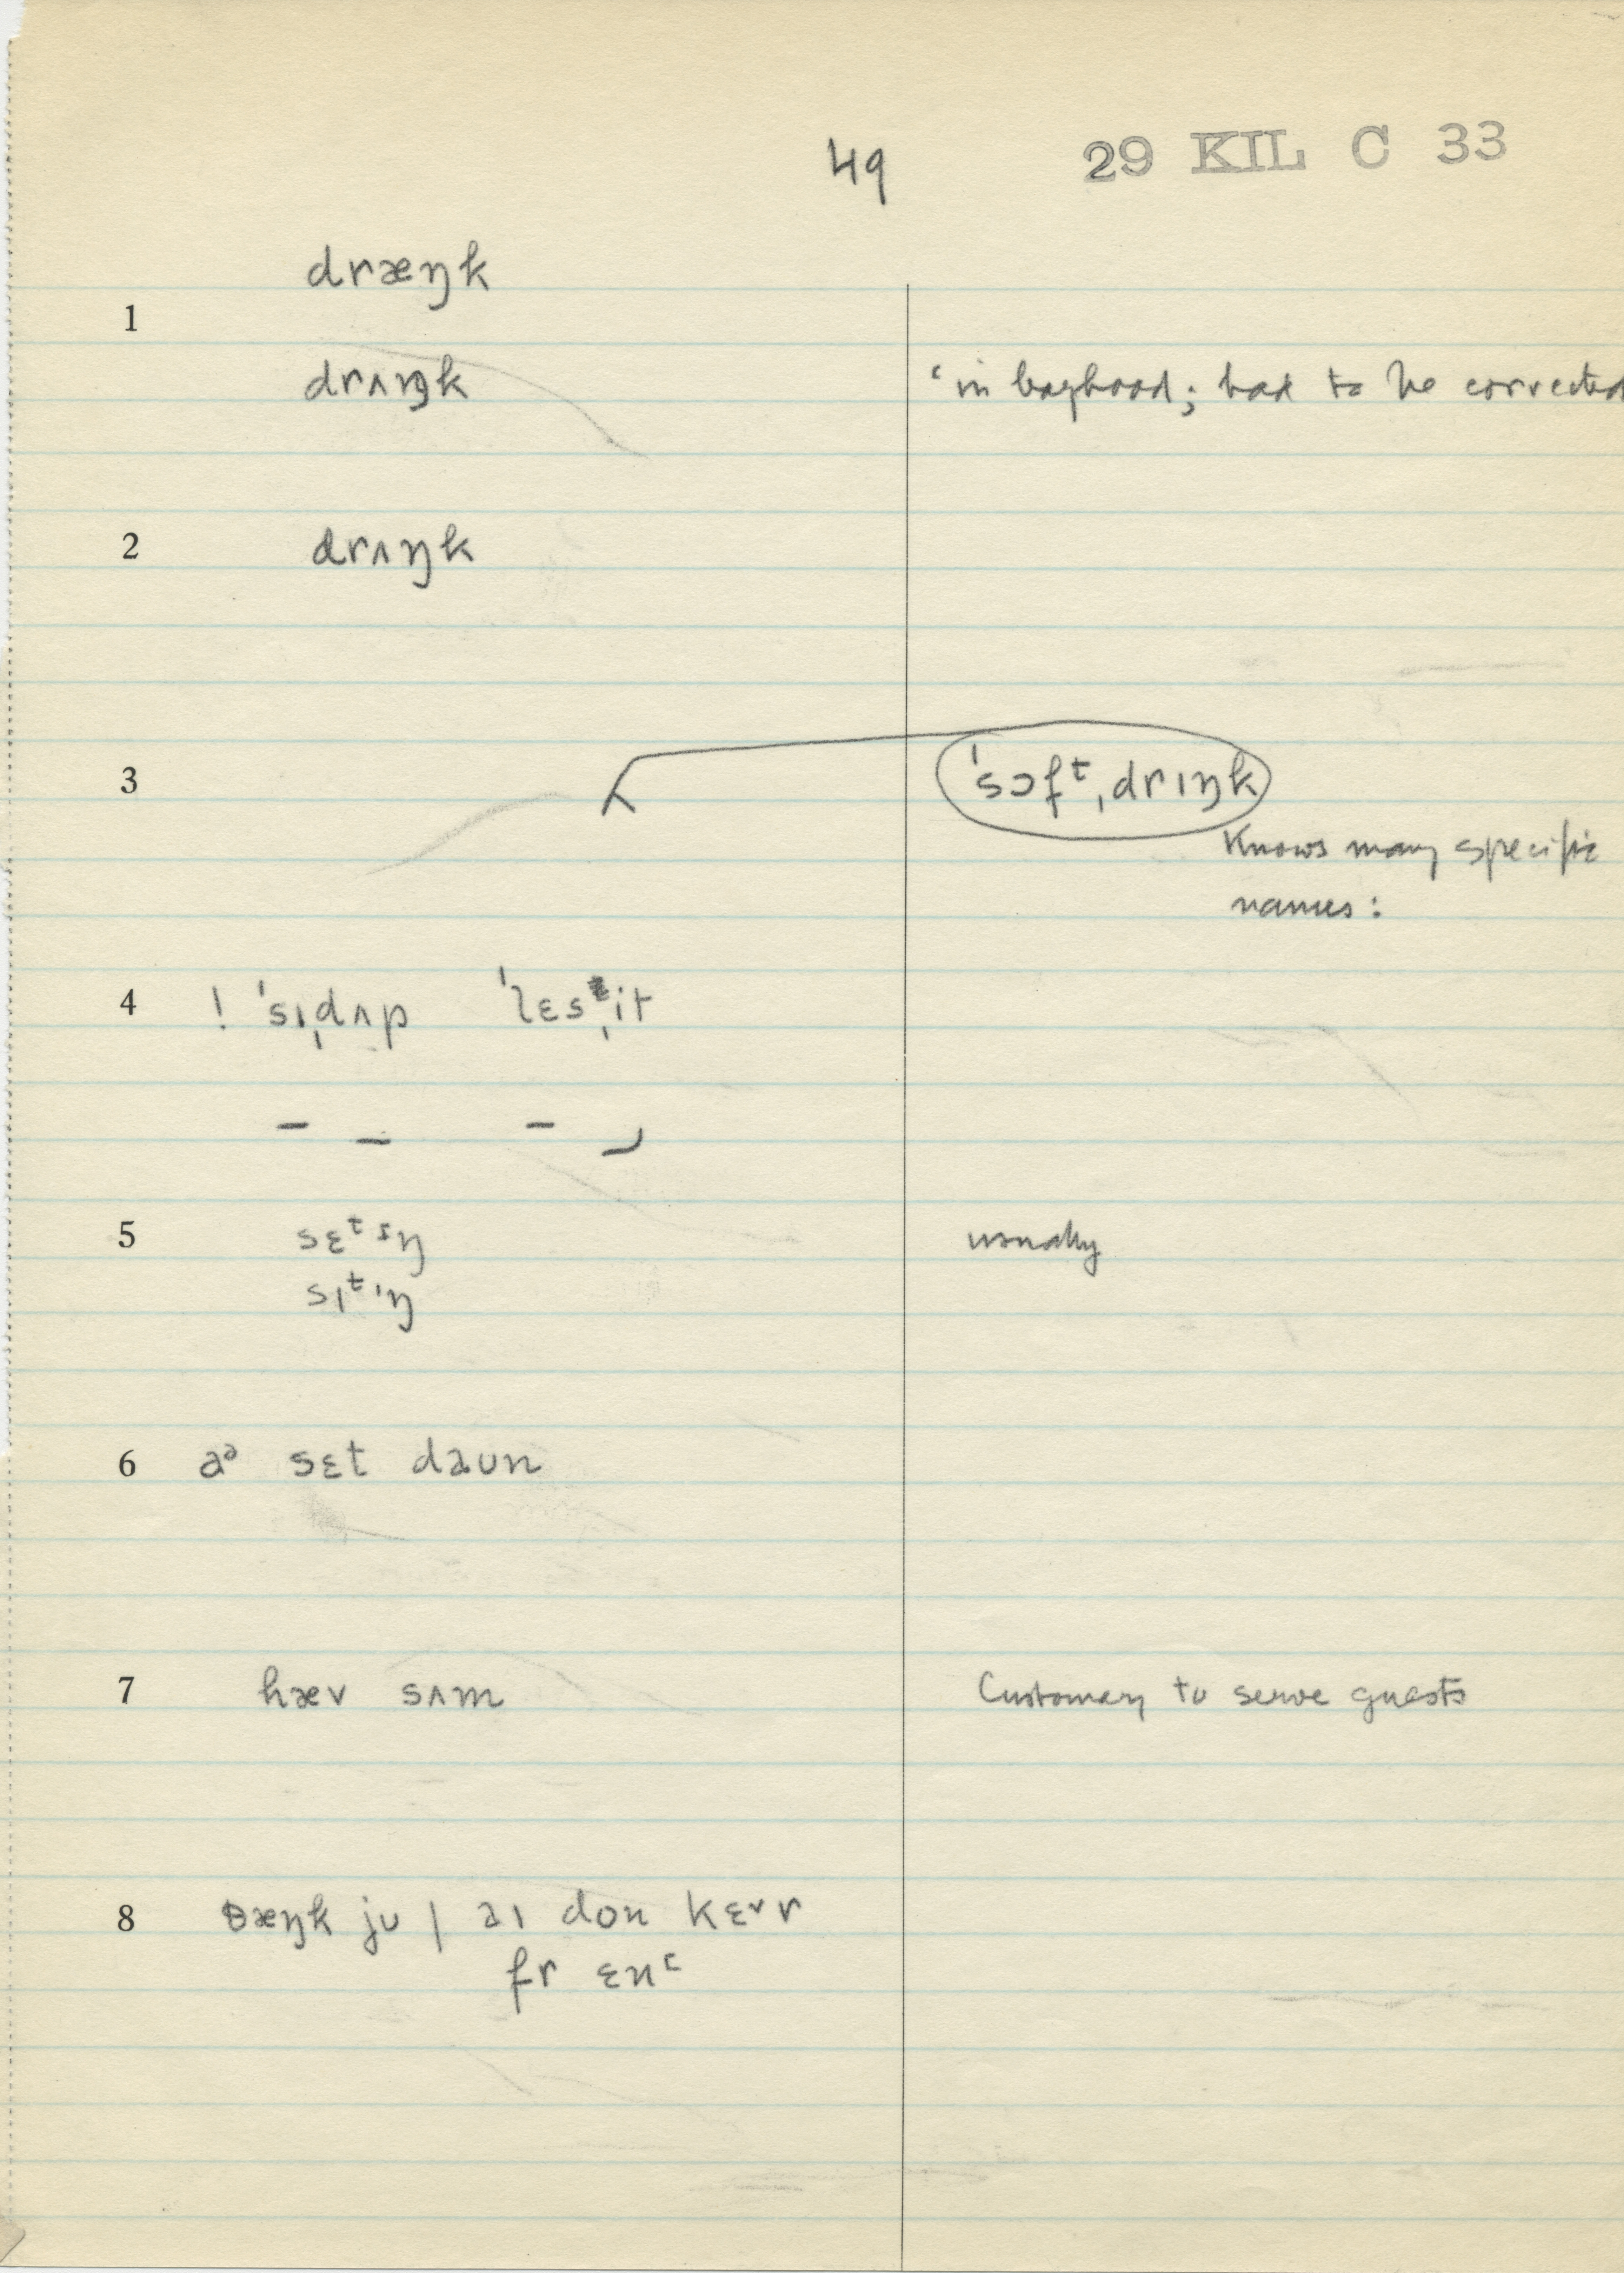 49 29 KIL C 33
dræŋk
1
drʌŋk ‘in boyhood; had to be corrected
2 drʌŋk
3 ˈsɔfᵗˌdrɪŋk
Knows many specific
names:
4 ! ˈsɪˌdʌp ˈlɛsˌit
5 sɛᵗɪŋ usually
sɪᵗɪŋ
6 aᵊ sɛt daʊn
7 hæv sʌm Customary to serve guests
8 θæŋk jʊ | aɪ don kɛr
fr ɛnᶦ